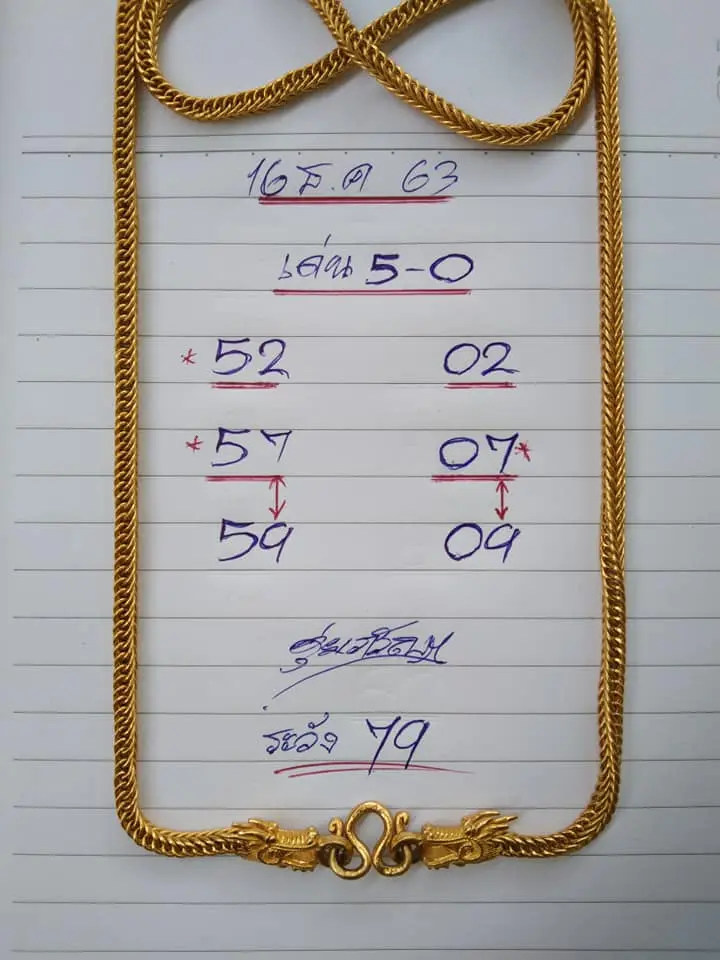 16 ธ.ค 63
เด่น 5-0
*52 02
*57 07*
59 09
ระวัง 79